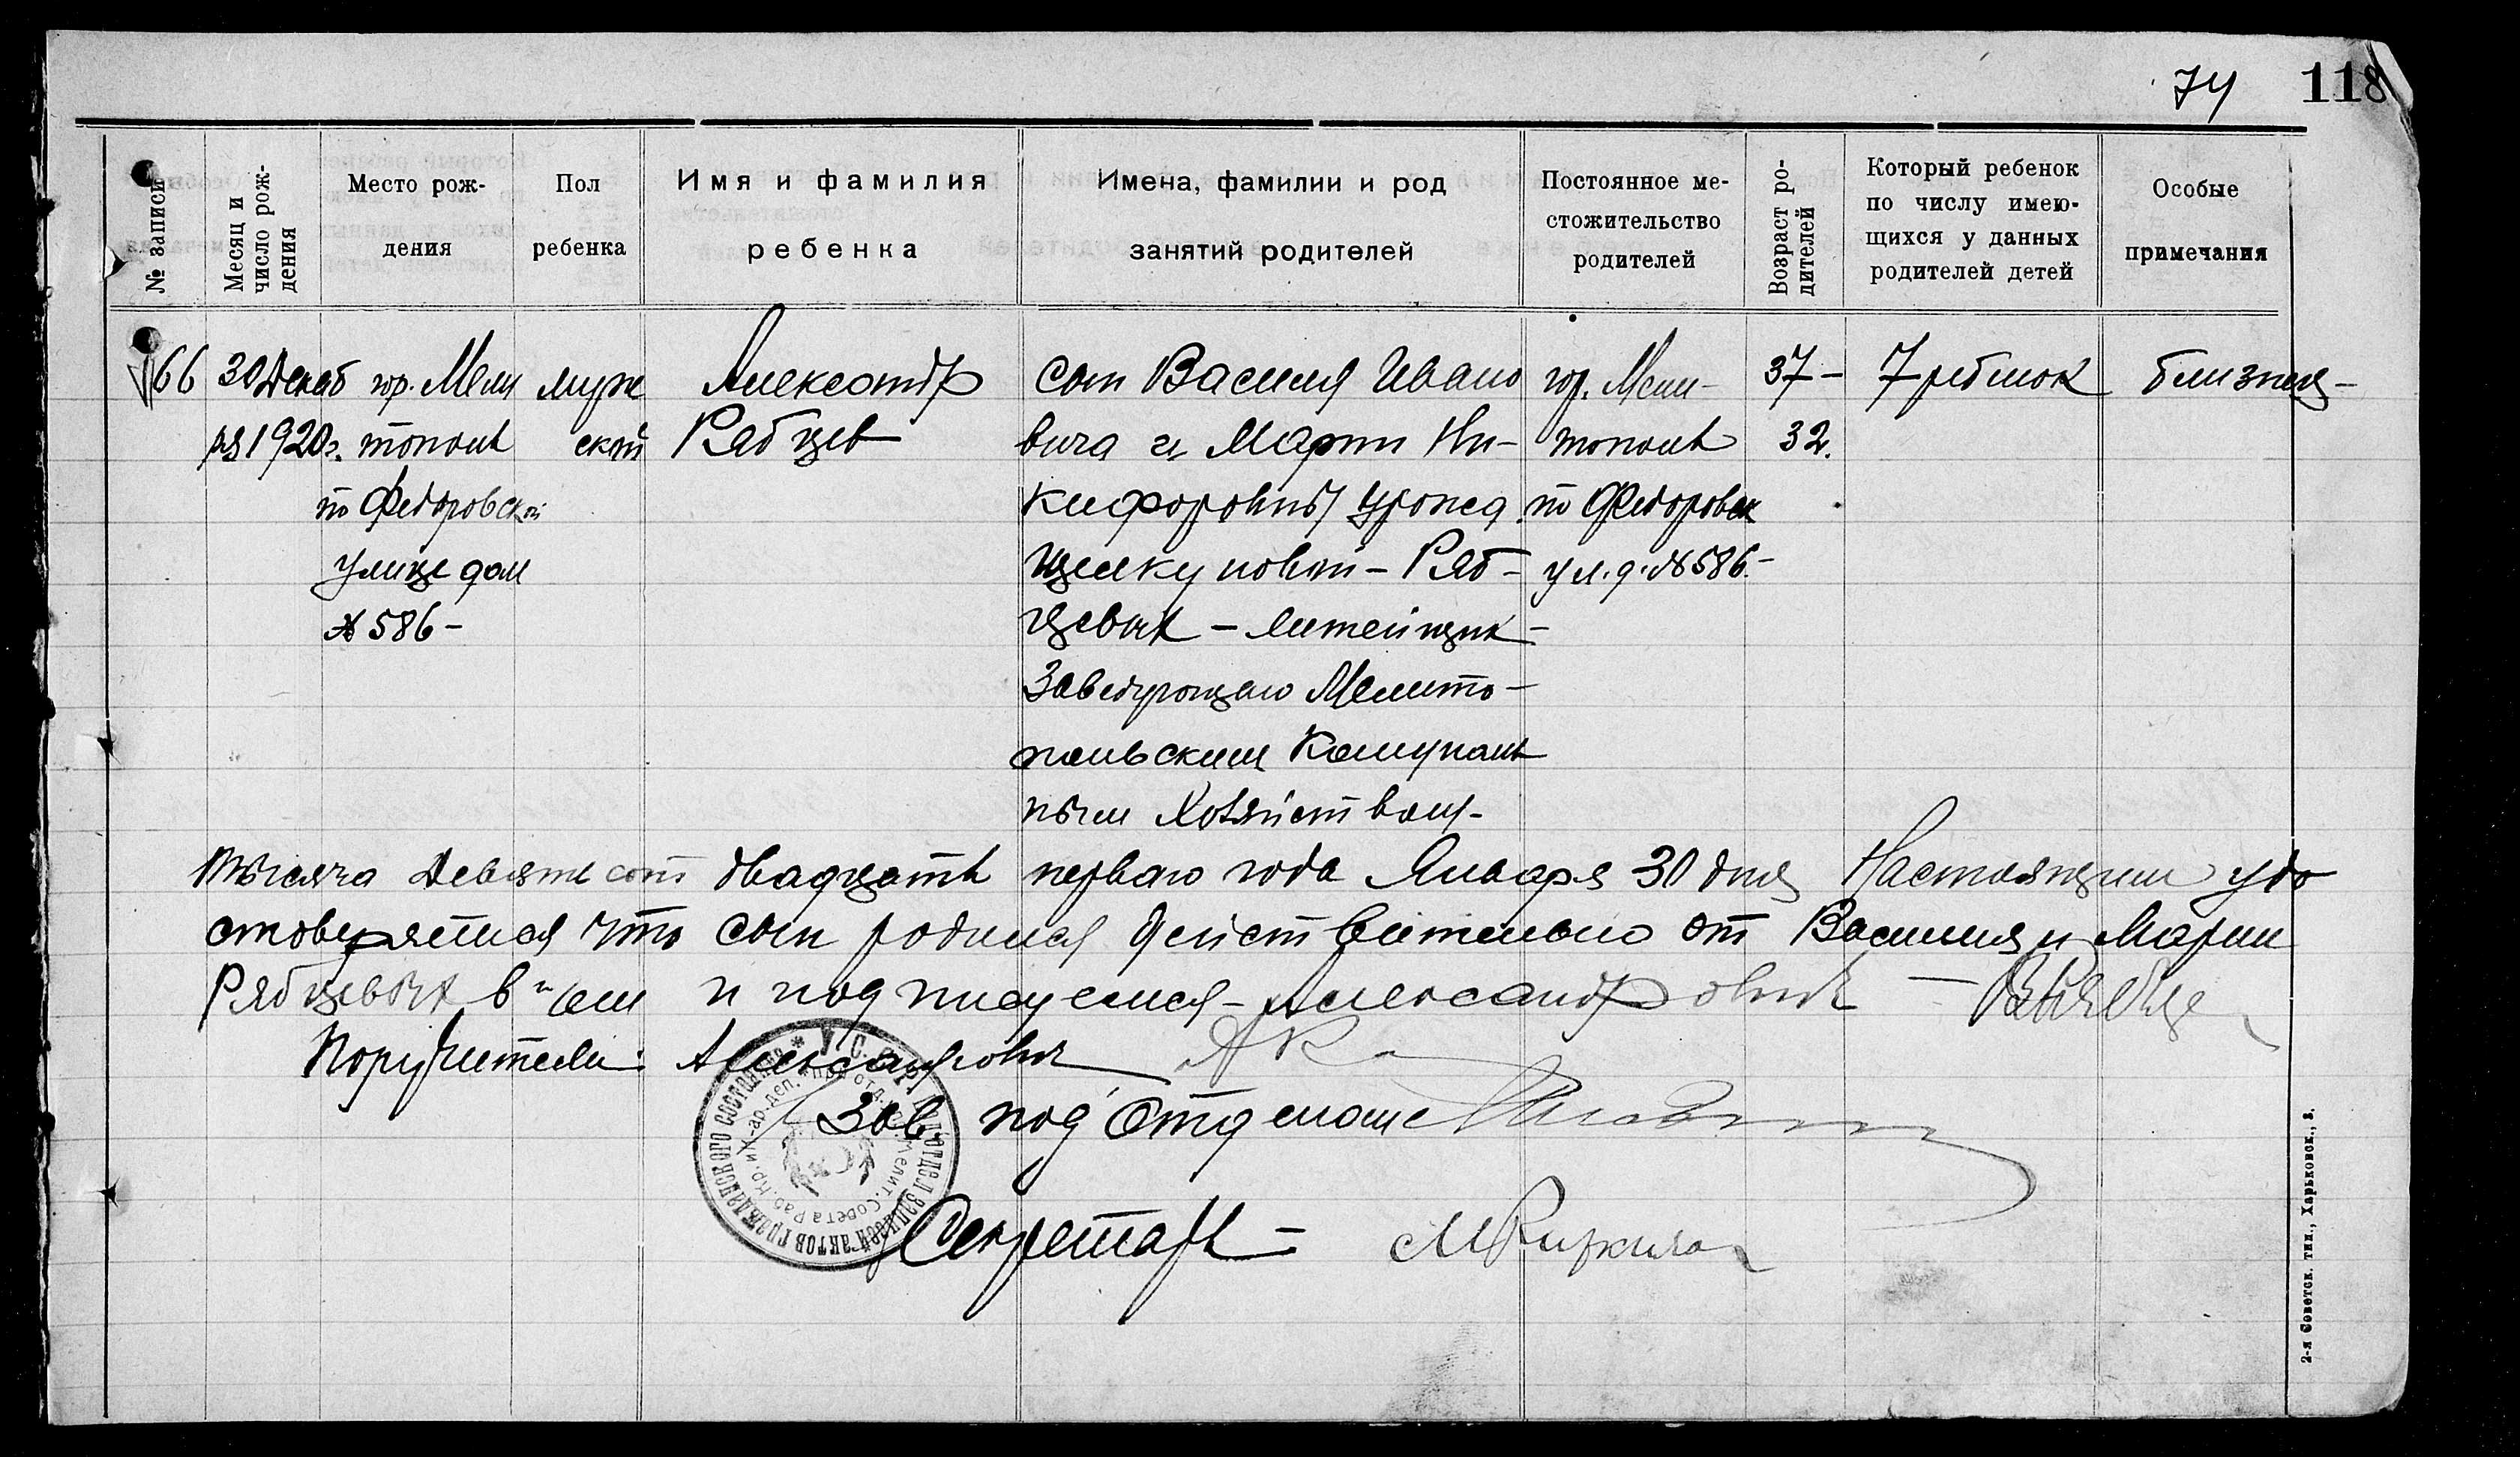 74 118
№ записи
Месяц и число рождения
Место рож-
дения
Пол
ребенка
Имя и фамилия
ребенка
Имена, фамилии и род
занятий родителей
Постоянное ме-
стожительство
родителей
Возраст ро-
дителей
Который ребенок
по числу имею-
щихся у данных
родителей детей
Особые
примечания
66
30 Декаб
ря 1920 г.
гор. Мели
тополь
по Федоровской
улице дом
№ 586 -
муж
ской
Александр
Рябцев
сын Василия Ивано
вича и Марии Ни-
кифоровны урожд.
Ряб-
цевых - литейщик -
Заведующего Мелито-
польским Комунал
ным Хозяйством -
гор. Мели-
тополь
по Федоровск
ул. д. № 586. -
37 -
32.
7 ребенок
близнец -
Тысяча Девятьсот двадцать первого года Января 30 дня Настоящим удо
стоверяется что сын родился действительно от Василия и Марии
Рябцевых в чем и подписуемся -
Поручители:
Зав. под'отделом
Секретарь -
У.С.С.Р. Подотдел записей актов гражданского состояния *
2-я Советск. тип., Харьковск., 8.